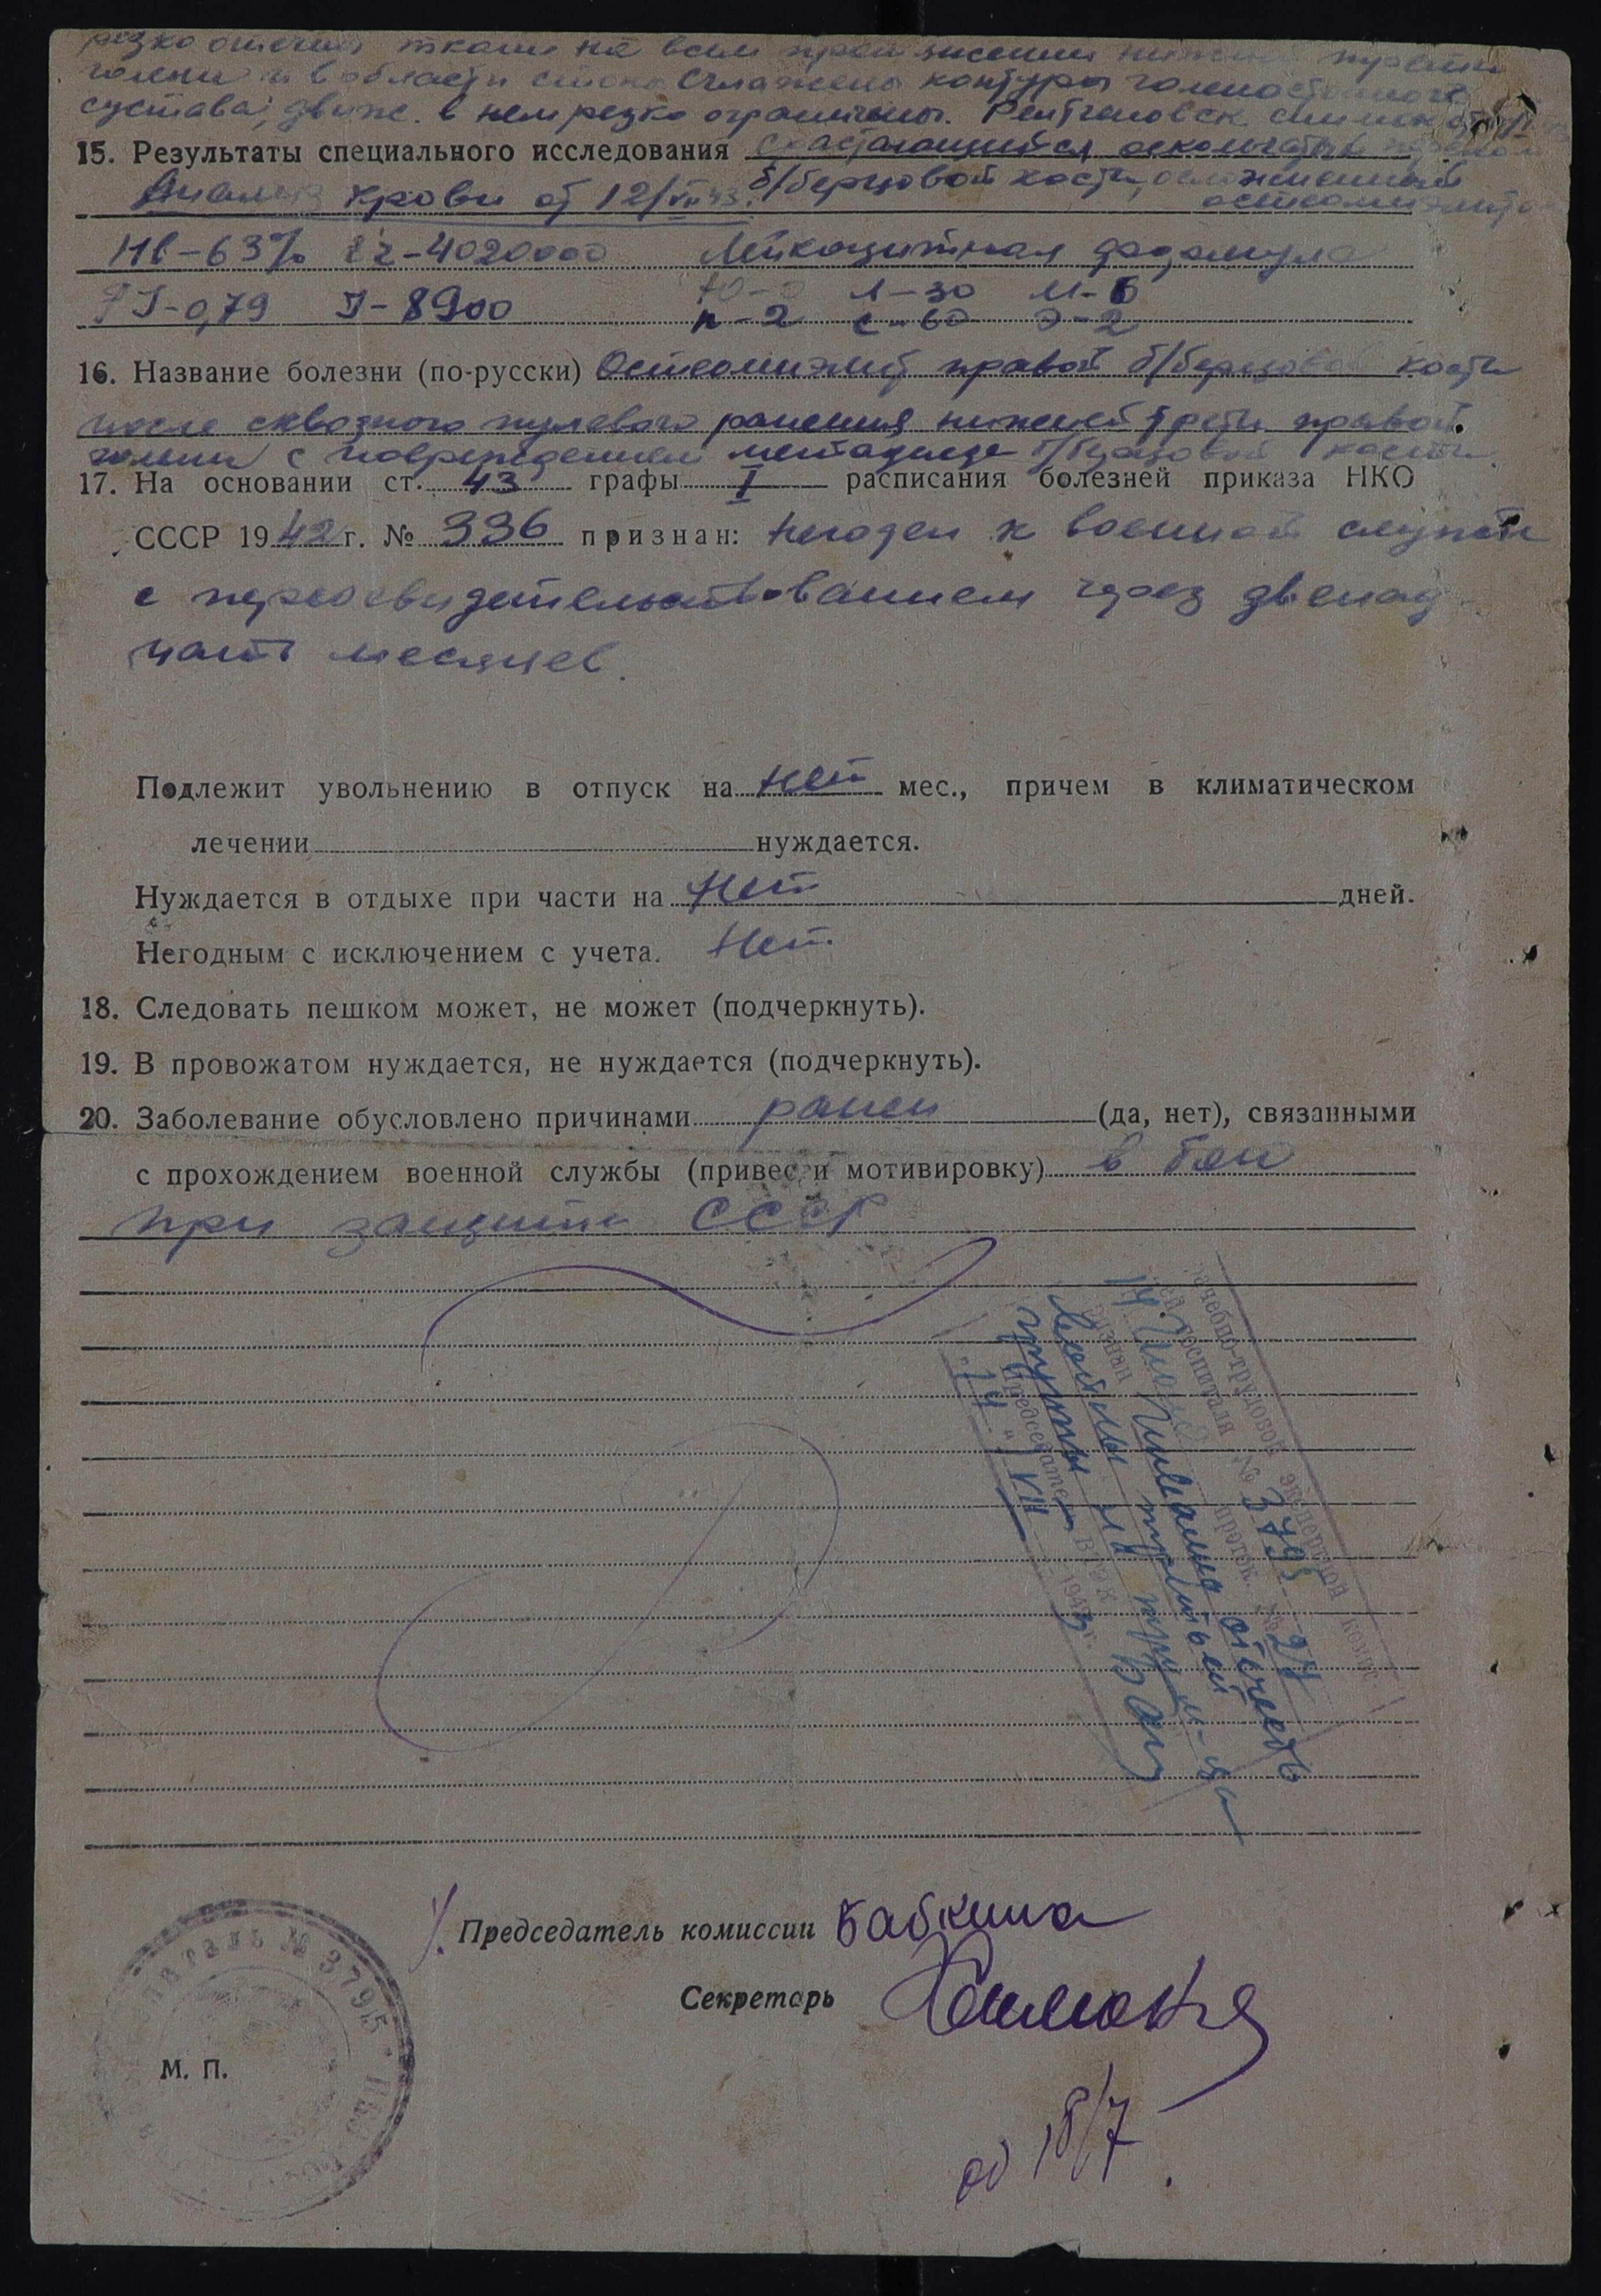 резко отечны ткани на всем протяжении нижней трети
голени и в области стопы. Сглажены контуры голеностопного
сустава; движ. в нем резко ограничены. Рентгеновск. снимок от
15. Результаты специального исследования срастающийся оскольчатый перелом
Анализ крови от 12/VII 43. б/берцовой кости, осложненный
остеомиэлитом
Нв-63% Er-4020000 Лейкоцитная формула
FI-0,79 L-8900 Ю-0 Л-30 М-6
п-2 с-60 Э-2
16. Название болезни (по-русски) Остеомиэлит правой б/берцовой кости
после сквозного пулевого ранения нижней трети правой
голени с повреждением метадиафиза б/берцовой кости.
17. На основании ст. 43 графы I расписания болезней приказа НКО
СССР 1942 г. № 336 признан: негоден к военной службе
с переосвидетельствованием через двенад-
цать месяцев.
Подлежит увольнению в отпуск на нет мес., причем в климатическом
лечении нуждается.
Нуждается в отдыхе при части на нет дней.
Негодным с исключением с учета. нет.
18. Следовать пешком может, не может (подчеркнуть).
19. В провожатом нуждается, не нуждается (подчеркнуть).
20. Заболевание обусловлено причинами ранен (да, нет), связанными
с прохождением военной службы (привести мотивировку) в бою
при защите СССР
врачебно-трудовой экспертной комис.
госпиталя № 3795 проток. № 27
Инвалид Отечеств
признан
войны третьей
группы
Председатель ВТЭК
"14" VII 1943 г.
Председатель комиссии Бабкина
Секретарь
М. П.
госпиталь № 3795
18/7.